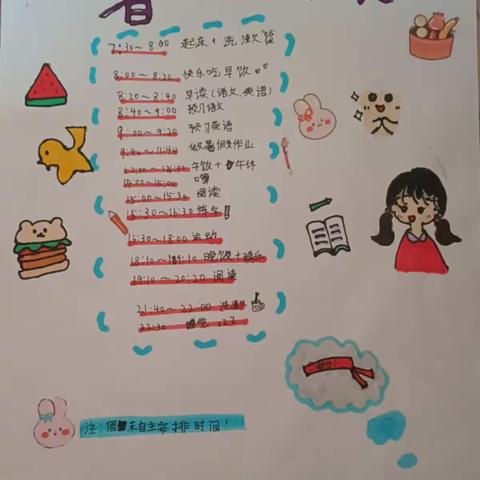 7:30～8:00 起床+洗漱
8:00～8:20 快乐吃早饭
8:20～8:40 早读(语文、英语)
8:40～9:00 预习语文
9:00～9:20 预习英语
9:40～11:40 做暑假作业
12:00～14:00 午饭+午休
15:00～15:30 阅读
15:30～16:30 练字
16:30～18:00 运动
18:10～19:10 晚饭+娱乐
19:10～20:20 阅读
21:40～22:00 洗漱
22:30 睡觉 zZ
注:周末自主安排时间!